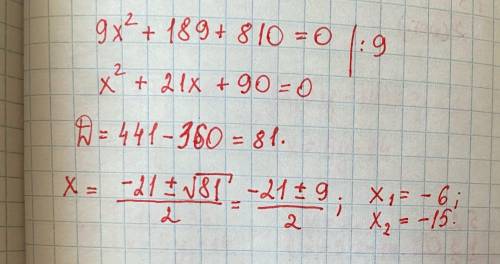 9x² + 189 + 810 = 0 | : 9
x² + 21x + 90 = 0
D = 441 - 360 = 81.
x = (-21 ± √81)/2 = (-21 ± 9)/2 ; x₁ = -6; x₂ = -15.